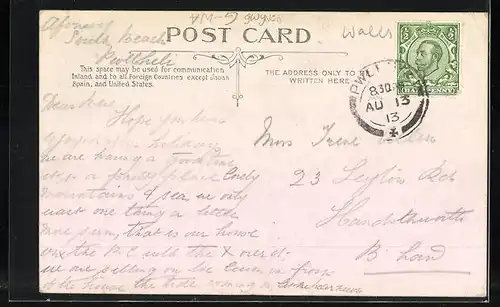 South Beach
Pwllheli
Wales
POST CARD
This space may be used for communication
Inland and to all Foreign Countries except Japan
Spain, and United States.
THE ADDRESS ONLY TO
WRITTEN HERE
HALFPENNY
PWLL
8.30
AU 13
13
Hope you have
enjoyed your holidays
we are having a good time
it is a lovely place lovely
mountains & sea we only
want one thing a little
more sun, that is our house
on the P.C with the X over it
we are sitting on the lawn in front
of the house the tide coming in
Miss Irene
23 Leyton Rd
Handsworth
B'ham